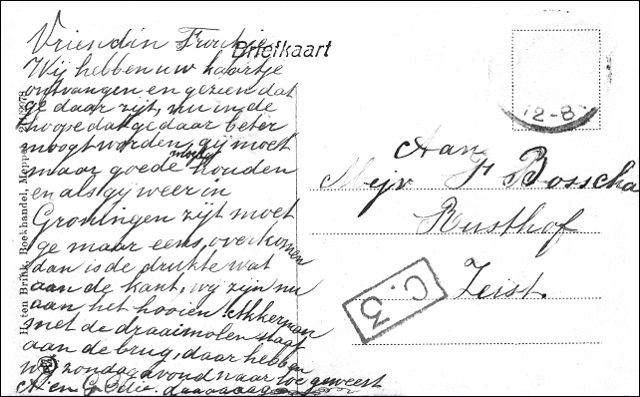 Briefkaart
Vriendin Froukje
Wij hebben uw kaartje
ontvangen en gezien dat
ge daar zijt, nu in de
hoope dat ge daar beter
moogt worden, gij moet
maar goede moed houden
en als gij weer in
Groningen zijt moet
ge maar eens overkomen
dan is de drukte wat
aan de kant, wij zijn nu
aan het hooien Akkerman
met de draaimolen staat
aan de brug, daar hebben
wij zondagavond naar toe geweest
12-8
Aan
Mejv F Bosscha
Rusthof
Zeist.
C. 3
H. ten Brink, Boekhandel, Meppel